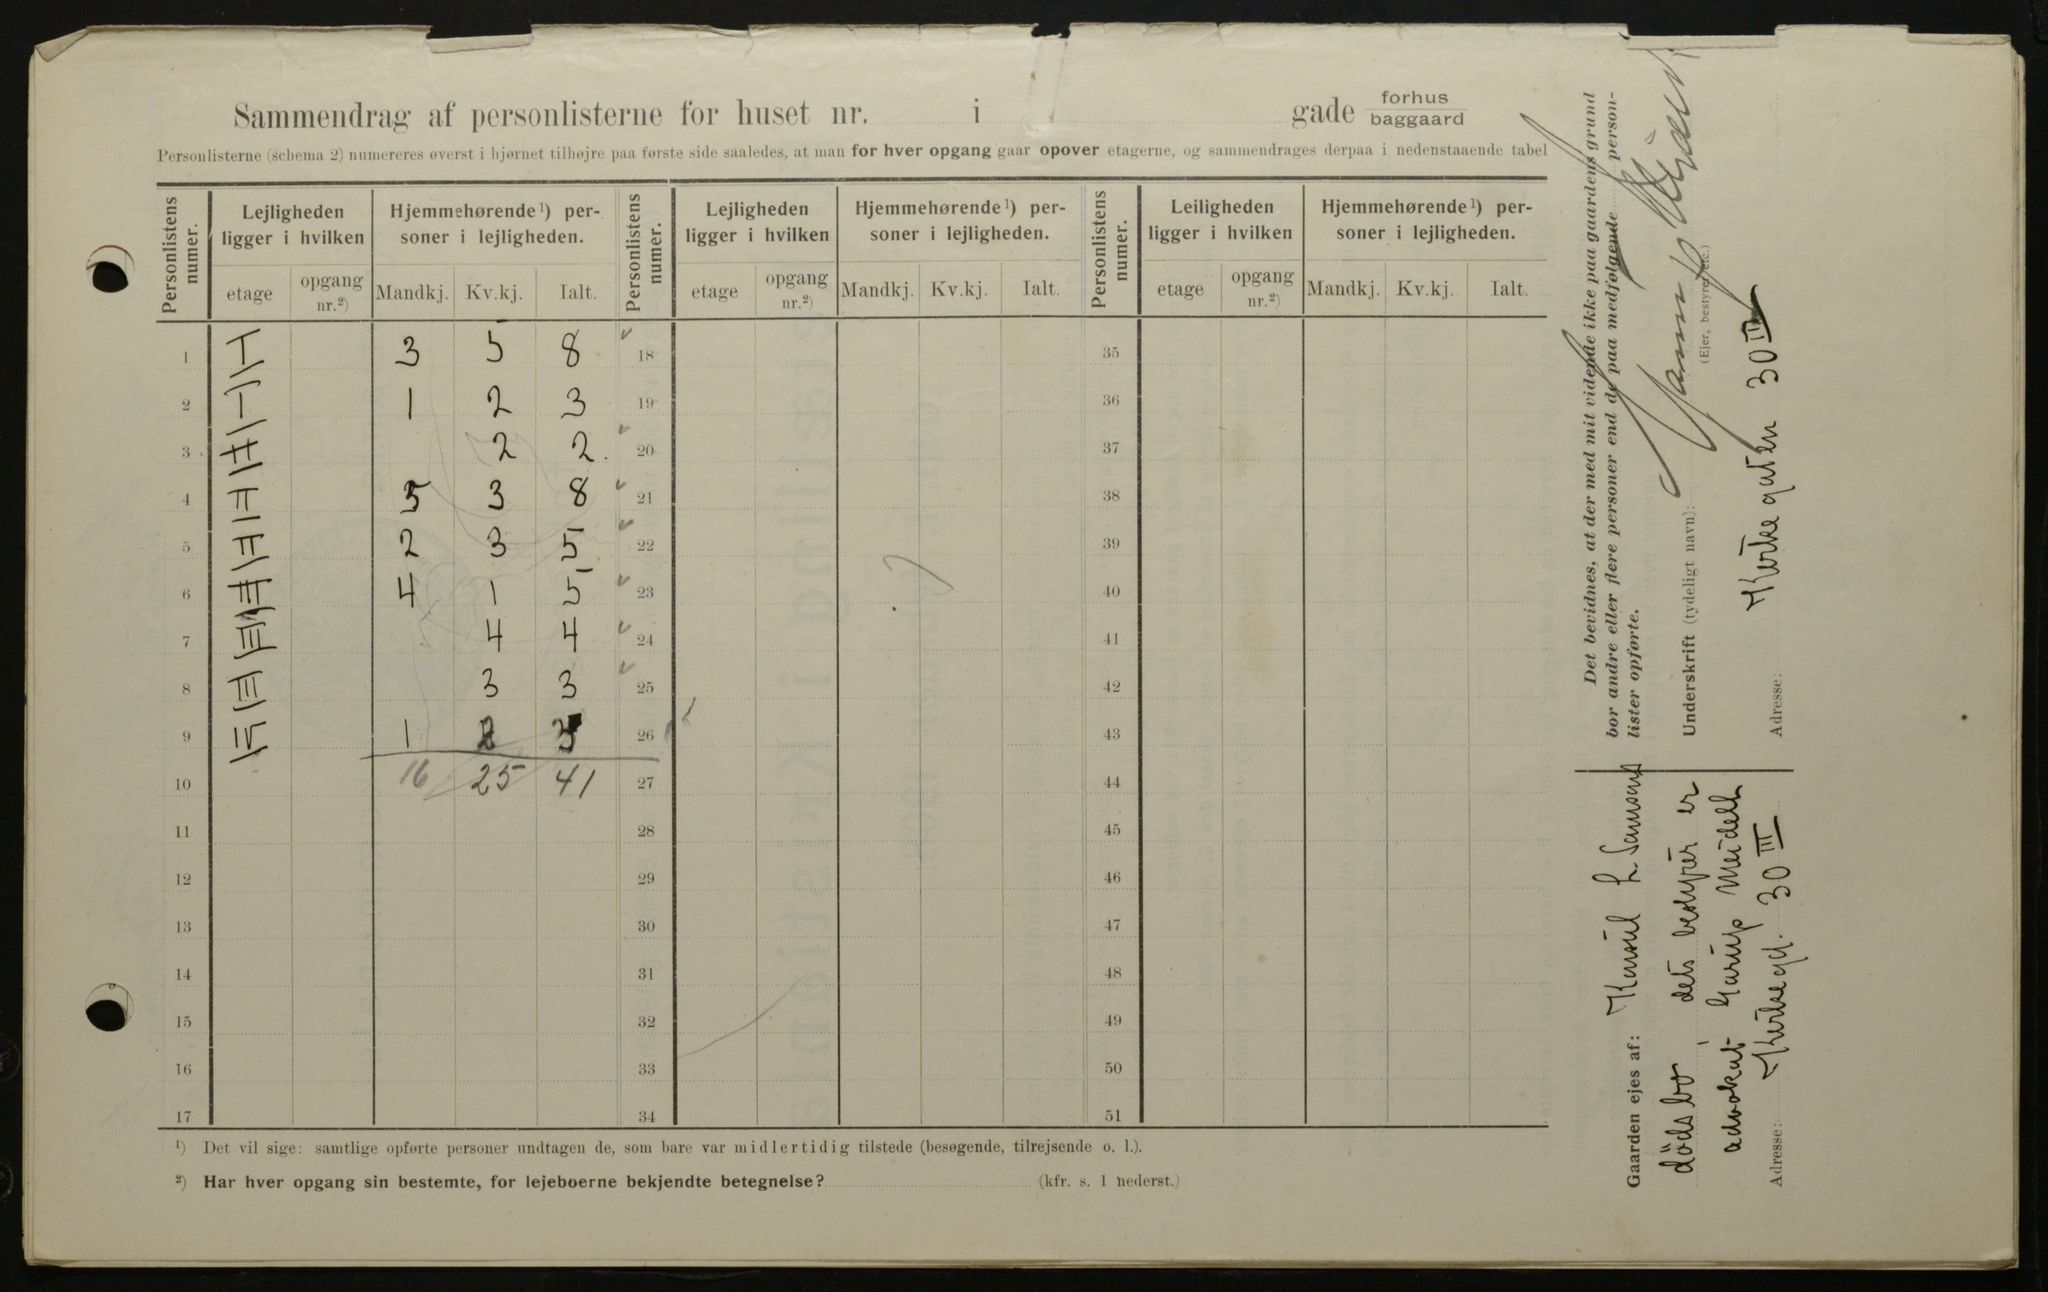 Sammendrag af personlisterne for huset nr. i gade forhus baggaard
Personlisterne (schema 2) numereres øverst i hjørnet tilhøjre paa første side saaledes, at man for hver opgang gaar opover etagerne, og sammendrages derpaa i nedenstaaende tabel
Personlistens numer.
Lejligheden ligger i hvilken
Hjemmehørende ¹) personer i lejligheden.
Personlistens numer.
Lejligheden ligger i hvilken
Hjemmehørende ¹) personer i lejligheden.
Personlistens numer.
Leiligheden ligger i hvilken
Hjemmehørende ¹) personer i lejligheden.
etage opgang nr.²) Mandkj. Kv.kj. Ialt. etage opgang nr.²) Mandkj. Kv.kj. Ialt. etage opgang nr.²) Mandkj. Kv.kj. Ialt.
1 3 5 8 18 35
2 1 2 3 19 36
3 2 2 20 37
4 5 3 8 21 38
5 2 3 5 22 39
6 4 1 5 23 40
7 4 4 24 41
8 3 3 25 42
9 1 2 3 26 43
10 16 25 41 27 44
11 28 45
12 29 46
13 30 47
14 31 48
15 32 49
16 33 50
17 34 51
¹) Det vil sige: samtlige opførte personer undtagen de, som bare var midlertidig tilstede (besøgende, tilrejsende o. l.).
²) Har hver opgang sin bestemte, for lejeboerne bekjendte betegnelse? (kfr. s. 1 nederst.)
Det bevidnes, at der med mit vidende ikke paa gaardens grund
bor andre eller flere personer end de paa medfølgende person-
lister opførte.
Underskrift (tydeligt navn):
(Ejer, bestyrer etc.)
Adresse: Kirkegaten 30 III
Gaarden ejes af: Konsul L. Samsons
dödsbo, dets bestyrer er
advokat Garup Meidell
Adresse: Kirkegd. 30 III